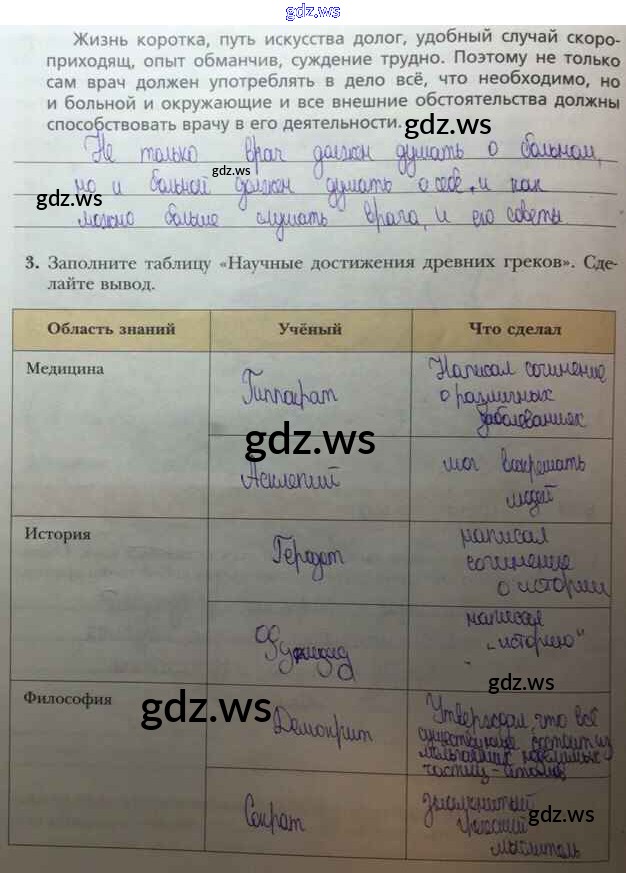 gdz.ws
Жизнь коротка, путь искусства долог, удобный случай скоро-
приходящ, опыт обманчив, суждение трудно. Поэтому не только
сам врач должен употреблять в дело всё, что необходимо, но
и больной и окружающие и все внешние обстоятельства должны
способствовать врачу в его деятельности.
gdz.ws
Не только врач должен думать о больном,
gdz.ws
но и больной должен думать о себе, и как
gdz.ws
можно больше слушать врача, и его советы
3. Заполните таблицу «Научные достижения древних греков». Сде-
лайте вывод.
Область знаний Учёный Что сделал
Медицина
Гиппократ
Написал сочинение
о различных
заболеваниях
gdz.ws
Асклепий
мог воскрешать
людей
История
Геродот
написал
сочинение
о истории
Фукидид
написал
„историю"
gdz.ws
Философия
gdz.ws
Демокрит
Утверждал, что всё
существующее состоит из
мельчайших неделимых
частиц - атомов
Сократ
знаменитый
греческий
мыслитель
gdz.ws